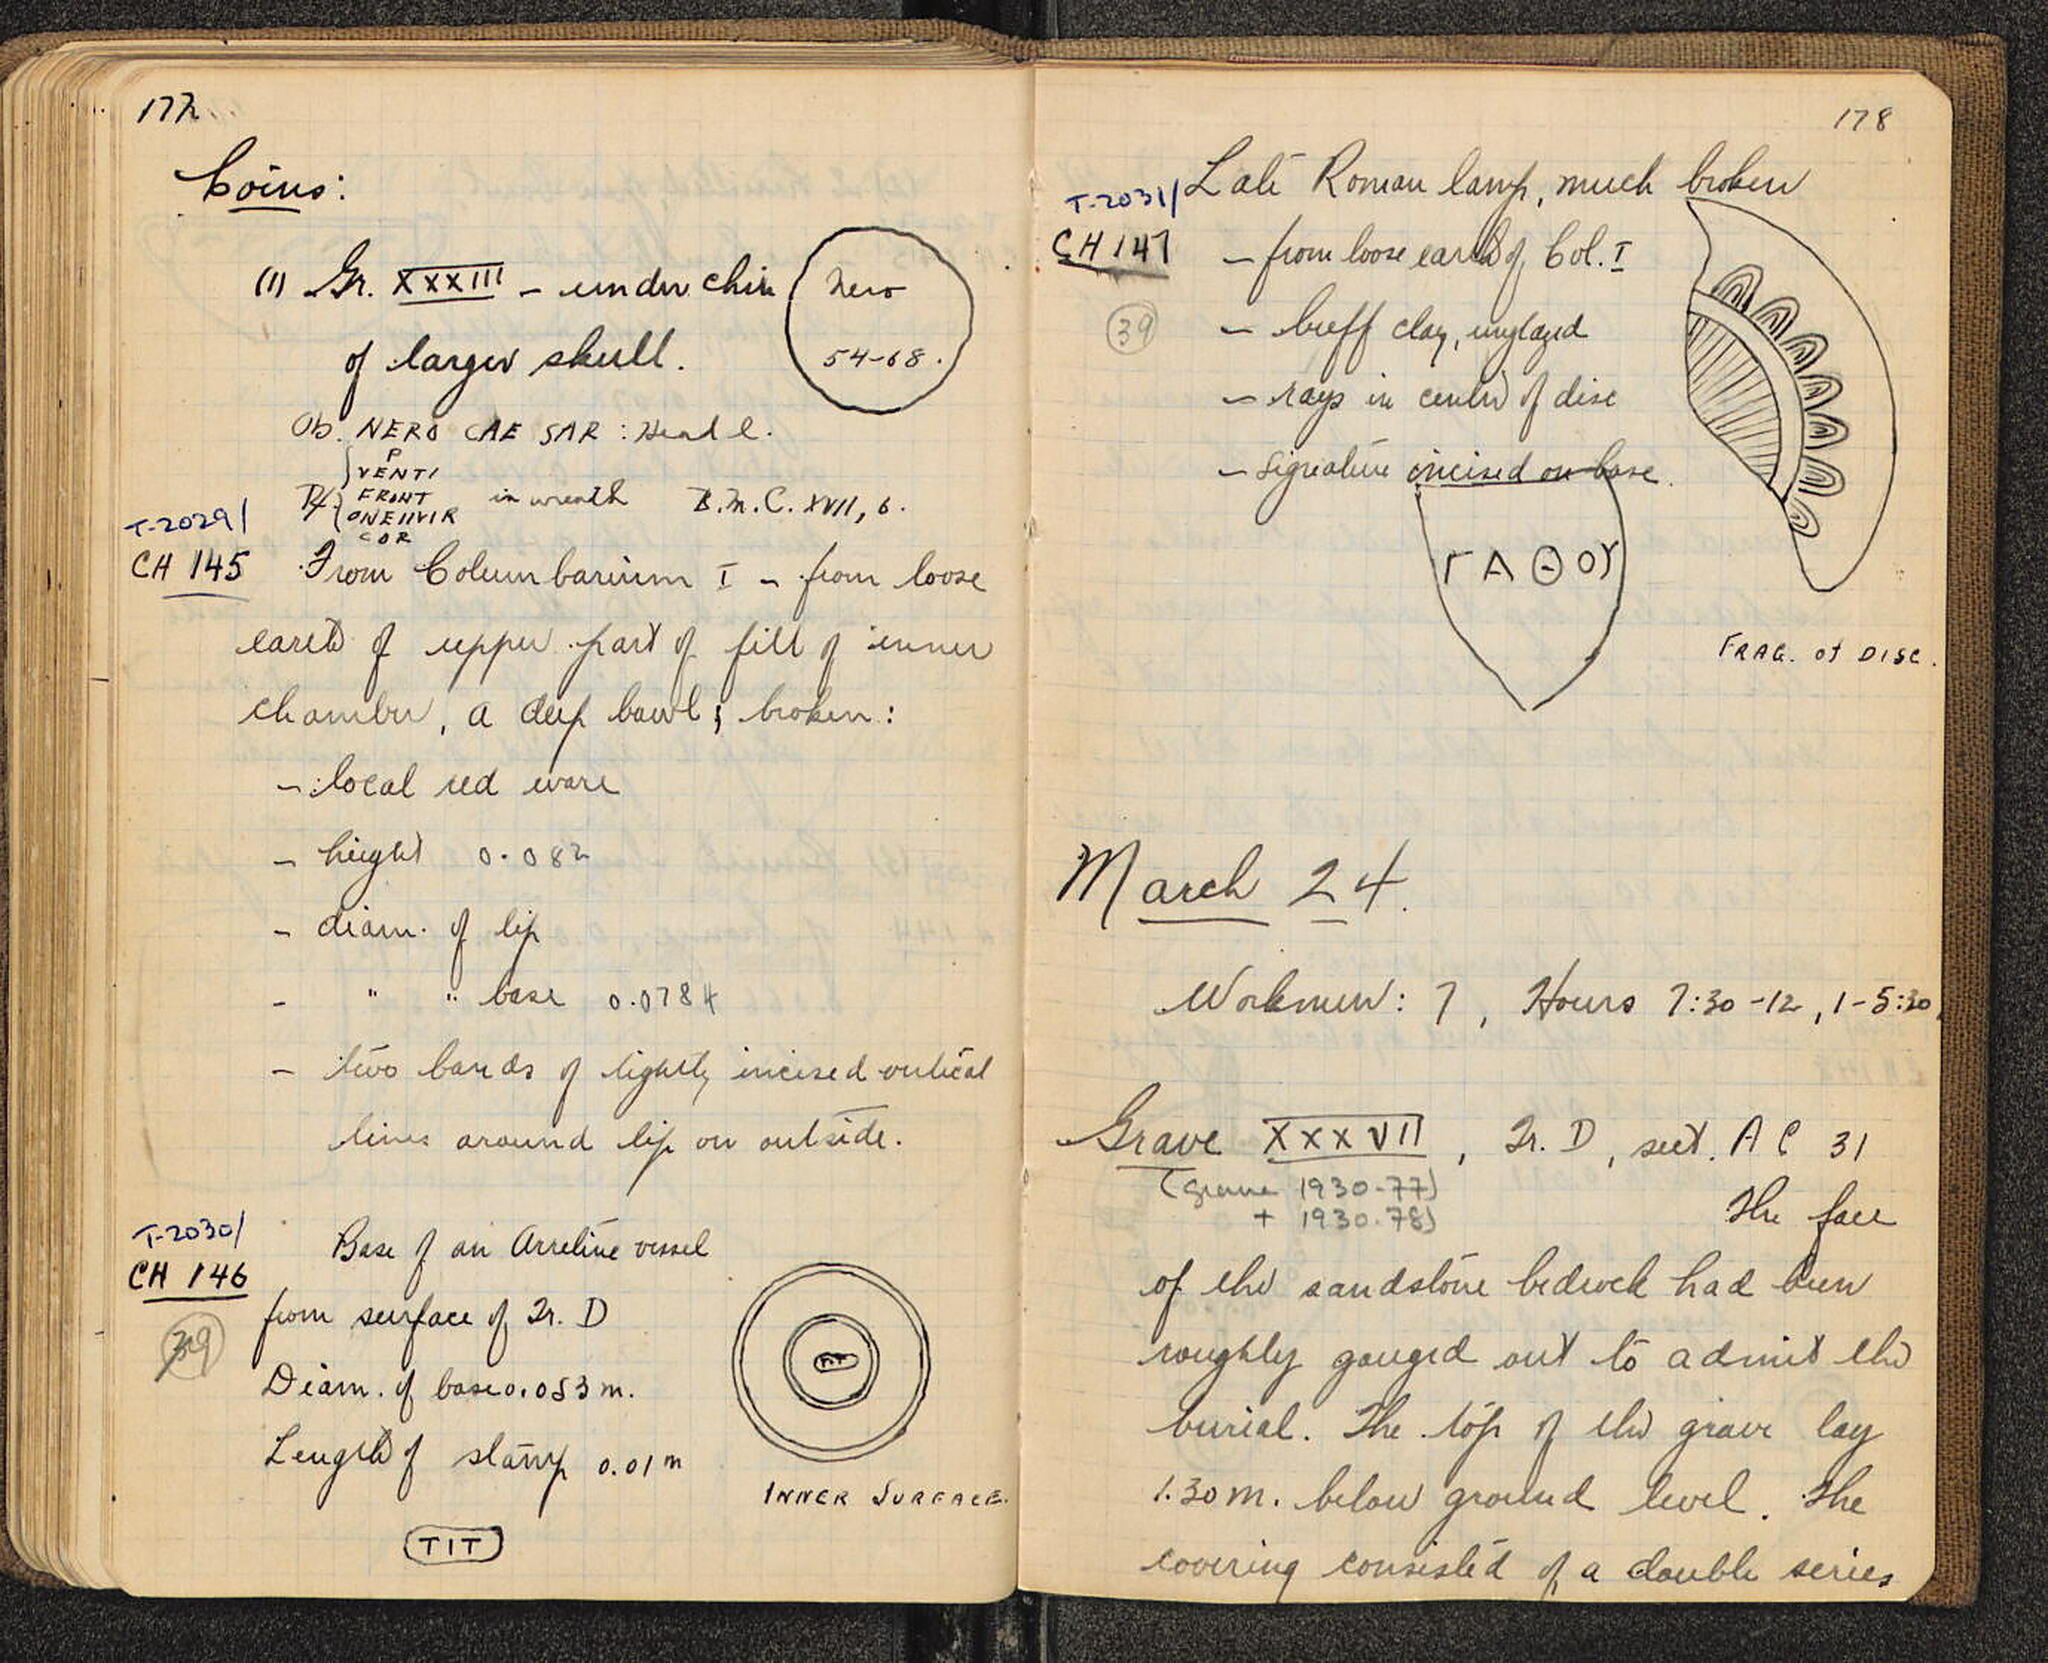 177
Coins:
(1) Gr. XXXIII – under chin
of larger skull.
Nero
54-68.
Ob. NERO CAESAR : Head l.
P
VENTI
FRONT
ONE IIVIR
COR
in wreath B.M.C. XVII, 6.
T-2029/
CH 145 From Columbarium I – from loose
earth of upper part of fill of inner
chamber, a deep bowl; broken:
– local red ware
– height 0.082
– diam. of lip
– " " base 0.0784
– two bands of lightly incised vertical
lines around lip on outside.
T-2030/
CH 146
39
Base of an Arretine vessel
from surface of Tr. D
Diam. of base 0.053 m.
Length of stamp 0.01 m
TIT
TIT
INNER SURFACE.
178
T-2031/
CH 147
39
Late Roman lamp, much broken
– from loose earth of Col. I
– buff clay, unglazed
– rays in center of disc
– signature incised on base.
ΓΑΘΟΥ
FRAG. of DISC.
March 24.
Workmen: 7, Hours 7:30-12, 1-5:30.
Grave XXXVII, Tr. D, sect. AC 31
(grave 1930-77)
+ 1930-78)
The face
of the sandstone bedrock had been
roughly gouged out to admit the
burial. The top of the grave lay
1.30 m. below ground level. The
covering consisted of a double series